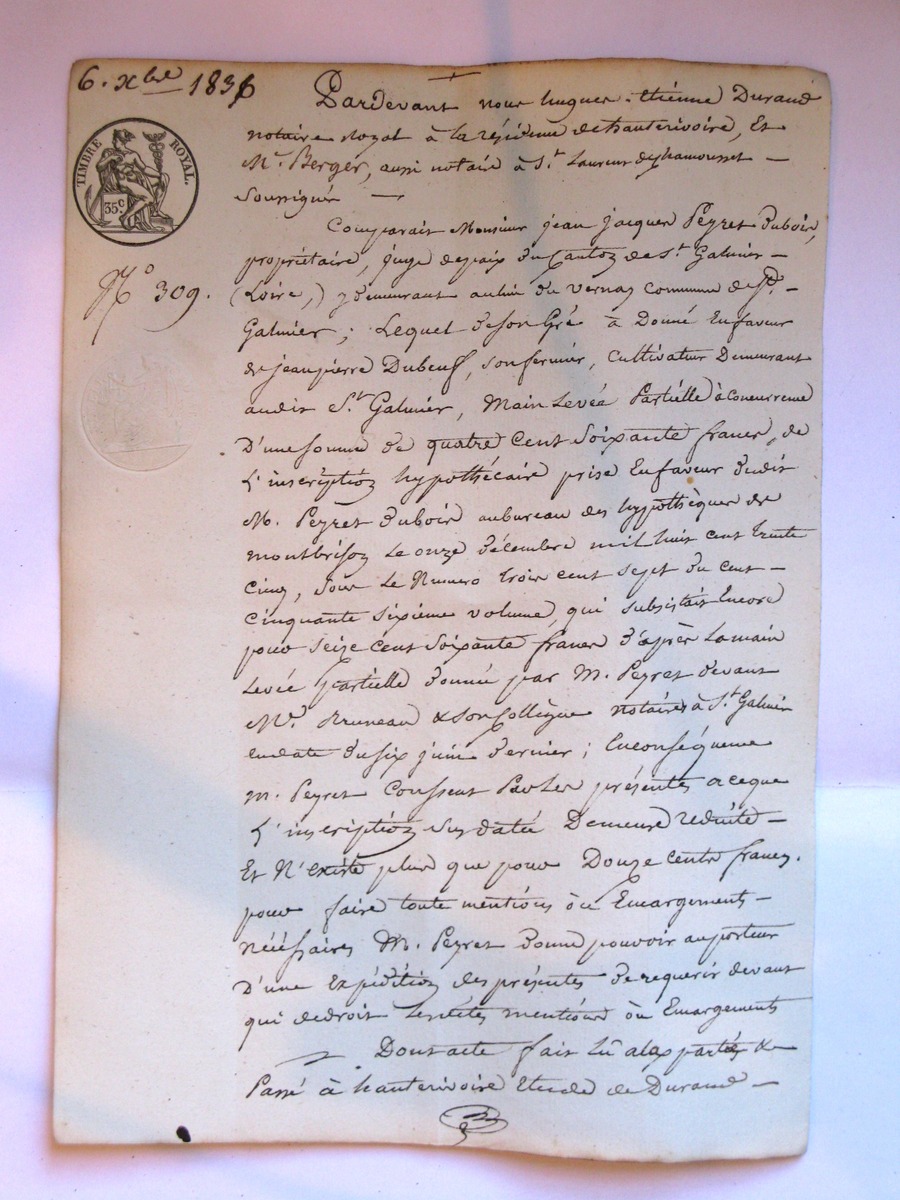 6. xbre 1836
TIMBRE ROYAL.
35c.
No 309.
Pardevant nous hugues-thienne Durand
notaire Royal à la résidence de hauterivoire, Et
Me. Berger, aussi notaire à St. Laurent de Chamousset —
Soussignés —
Comparait Monsieur jean jacques Peyret Dubois,
propriétaire, juge depaix du Canton de St. Galmier —
(Loire,) y demeurant au lieu du vernay commune de St. —
Galmier; Lequel de son Gré à Donné En faveur
de jean pierre Dubeuf, son fermier, Cultivateur Demeurant
audit St. Galmier, Main Levée Partielle à Concurrence
D'une somme de quatre Cent Soixante francs, de
L'inscription hypothécaire prise En faveur dudit
M. Peyret Dubois au bureau des hypothèques de
montbrison Le onze Décembre mil huit cent trente
Cinq, sous Le Numero trois cent sept du cent —
Cinquante sixieme volume, qui subsistait Encore
pour Seize Cent Soixante francs D'après La main
Levée partielle donnée par M. Peyret devant
Me. Bruneau & son Collègue notaires à St. Galmier
en date du six juin dernier; En conséquence
M. Peyret Consent Par Les présentes a ceque
L'inscription Sus datée Demeure réduite —
Et N'existe plus que pour Douze cents francs.
pour faire toute mentions où Emargements —
nécéssaires M. Peyret donne pouvoir au porteur
D'une Expédition des présentes de requerir devant
qui dedroit Lesdites mentions où Emargements
Dont acte fait Lû a la partie &
Passé à hauterivoire Etude de Durand —